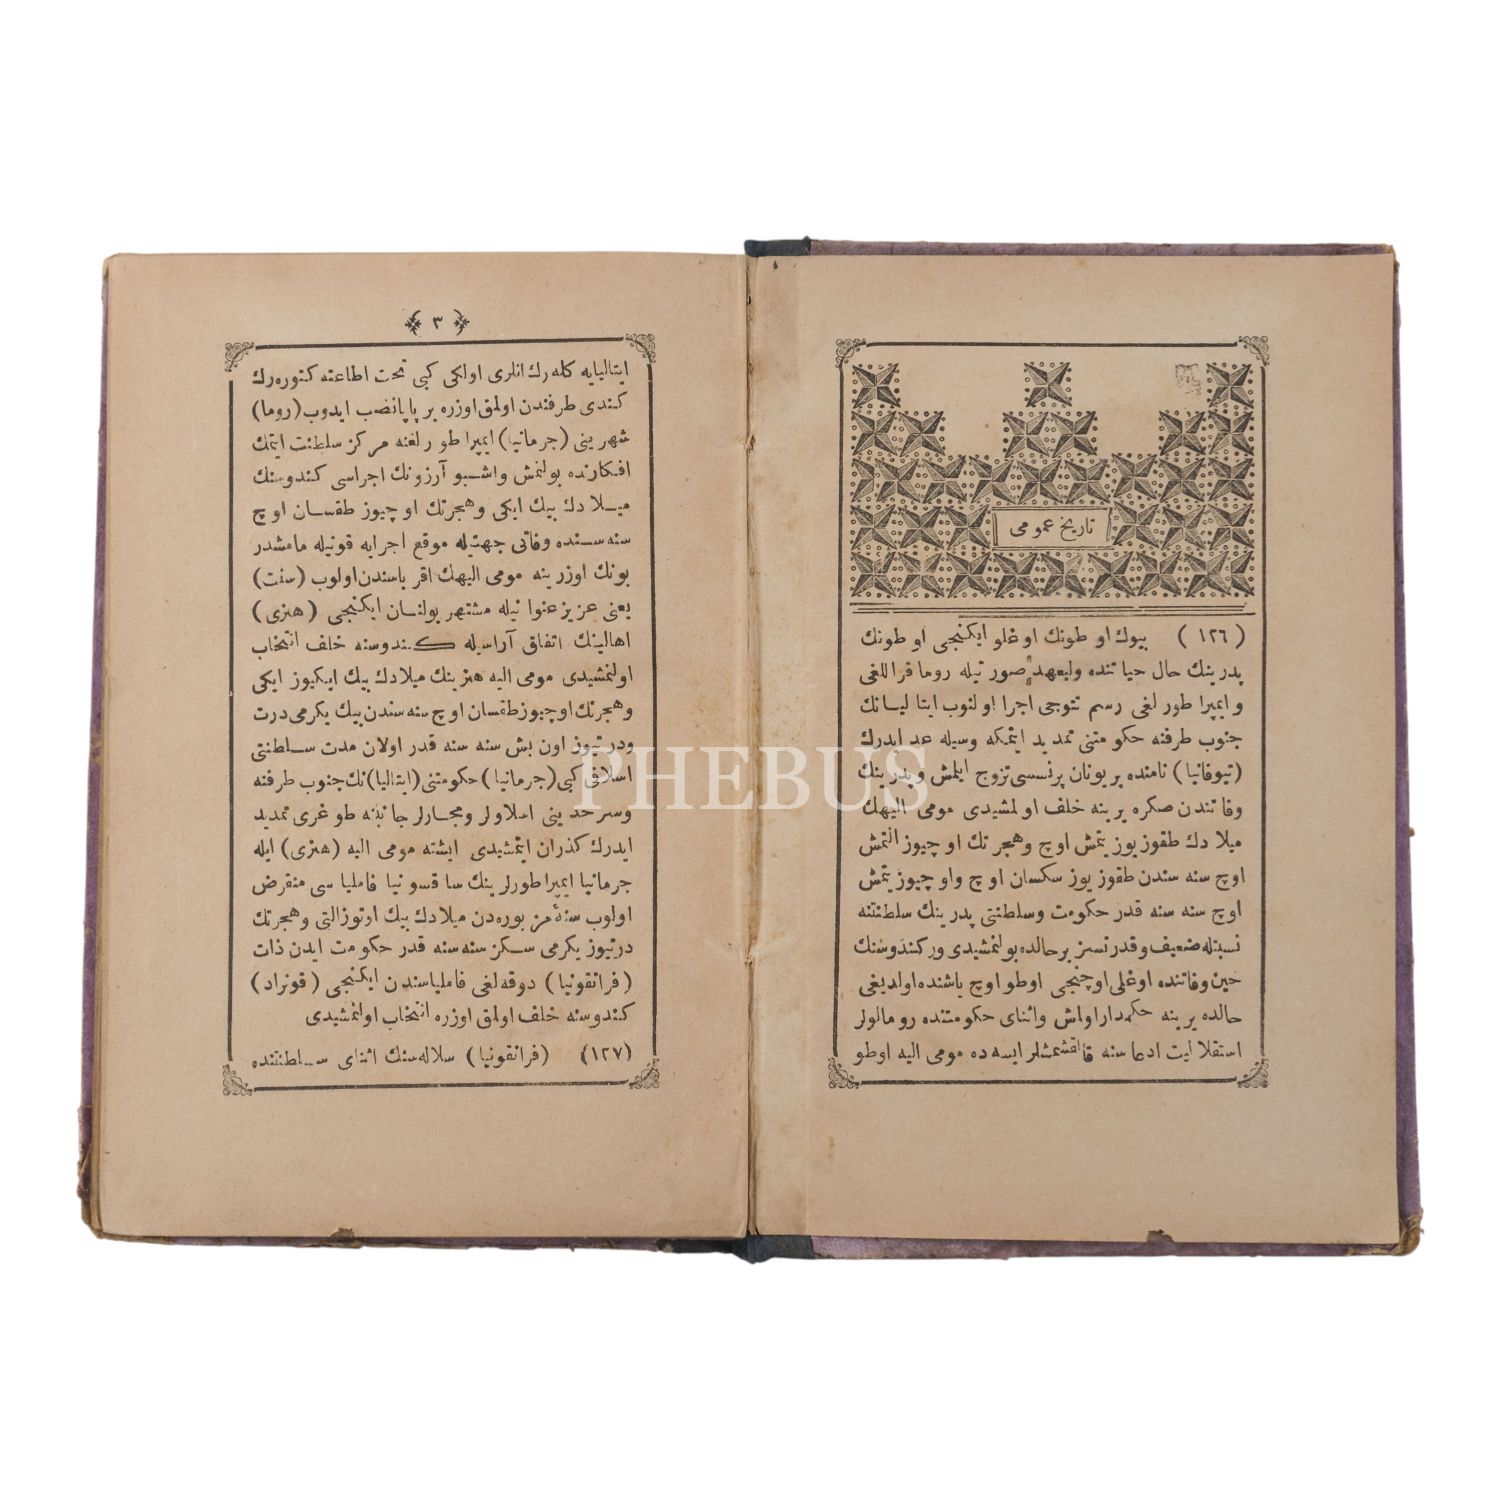 تاریخ عمومی
(١٢٦) بیوك او طونك اوغلو ایكنجی او طونك
پدرینك حال حیاتنده ولیعهد صورتیله روما قراللغی
و ایمپراطورلغی رسم تتوجی اجرا اولنوب ایتالیانك
جنوب طرفنه حكومتنی تمدید ایتمكه وسیله عد ایدرك
(تیوفانیا) نامنده بر یونان پرنسسی تزوج ایلمش و پدرینك
وفاتندن صكره یرینه خلف اولمشیدی مومی الیهك
میلادك طقوز یوز یتمش اوچ و هجرتك اوچیوز التمش
اوچ سنه سندن طقوز یوز سكسان اوچ و اوچیوز یتمش
اوچ سنه سنه قدر حكومت و سلطنتی پدرینك سلطنتنه
نسبتله ضعیف و قدرتسز بر حالده بولنمشیدی و ركندوسنك
حین وفاتنده اوغلی اوچنجی اوطو اوچ یاشنده اولدیغی
حالده یرینه حكمدار اولمش و اثنای حكومتنده رومالولر
استقلالیت ادعاسنه قالقشمشلر ایسه ده مومی الیه اوطو
﴿٣﴾
ایتالیایه كله رك انلری اولكی كبی تحت اطاعته كتوره رك
كندی طرفندن اولمق اوزره بر پاپا نصب ایدوب (روما)
شهرینی (جرمانیا) ایمپراطورلغنه مركز سلطنت ایتمك
افكارنده بولنمش و اشبو آرزونك اجراسی كندوسنك
میلادك بیك ایكی و هجرتك اوچیوز طقسان اوچ
سنه سنده وفاتی جهتیله موقع اجرایه قونیله مامشدر
بونك اوزرینه مومی الیهك اقرباسندن اولوب (سنت)
یعنی عزیز عنوانیله مشتهر بولنان ایكنجی (هنری)
اهالینك اتفاق آراسیله كندوسنه خلف انتخاب
اولنمشیدی مومی الیه هنرینك میلادك بیك ایكیوز ایكی
و هجرتك اوچیوز طقسان اوچ سنه سندن بیك یكرمی درت
و درتیوز اون بش سنه سنه قدر اولان مدت سلطنتی
اسلافی كبی (جرمانیا) حكومتنی (ایتالیا) نك جنوب طرفنه
و سرحدینی اسلاولر و مجارلر جانبنه طوغری تمدید
ایدرك كذران ایتمشیدی ایشته مومی الیه (هنری) ایله
جرمانیا ایمپراطورلرینك ساقسونیا فاملیاسی منقرض
اولوب سنهٔ مزبوره دن میلادك بیك اوتوز التی و هجرتك
درتیوز یكرمی سكز سنه سنه قدر حكومت ایدن ذات
(فرانقونیا) دوقه لغی فاملیاسندن ایكنجی (قونراد)
كندوسنه خلف اولمق اوزره انتخاب اولنمشیدی
(١٢٧) (فرانقونیا) سلاله سنك اثنای سلطنتنده
PHEBUS